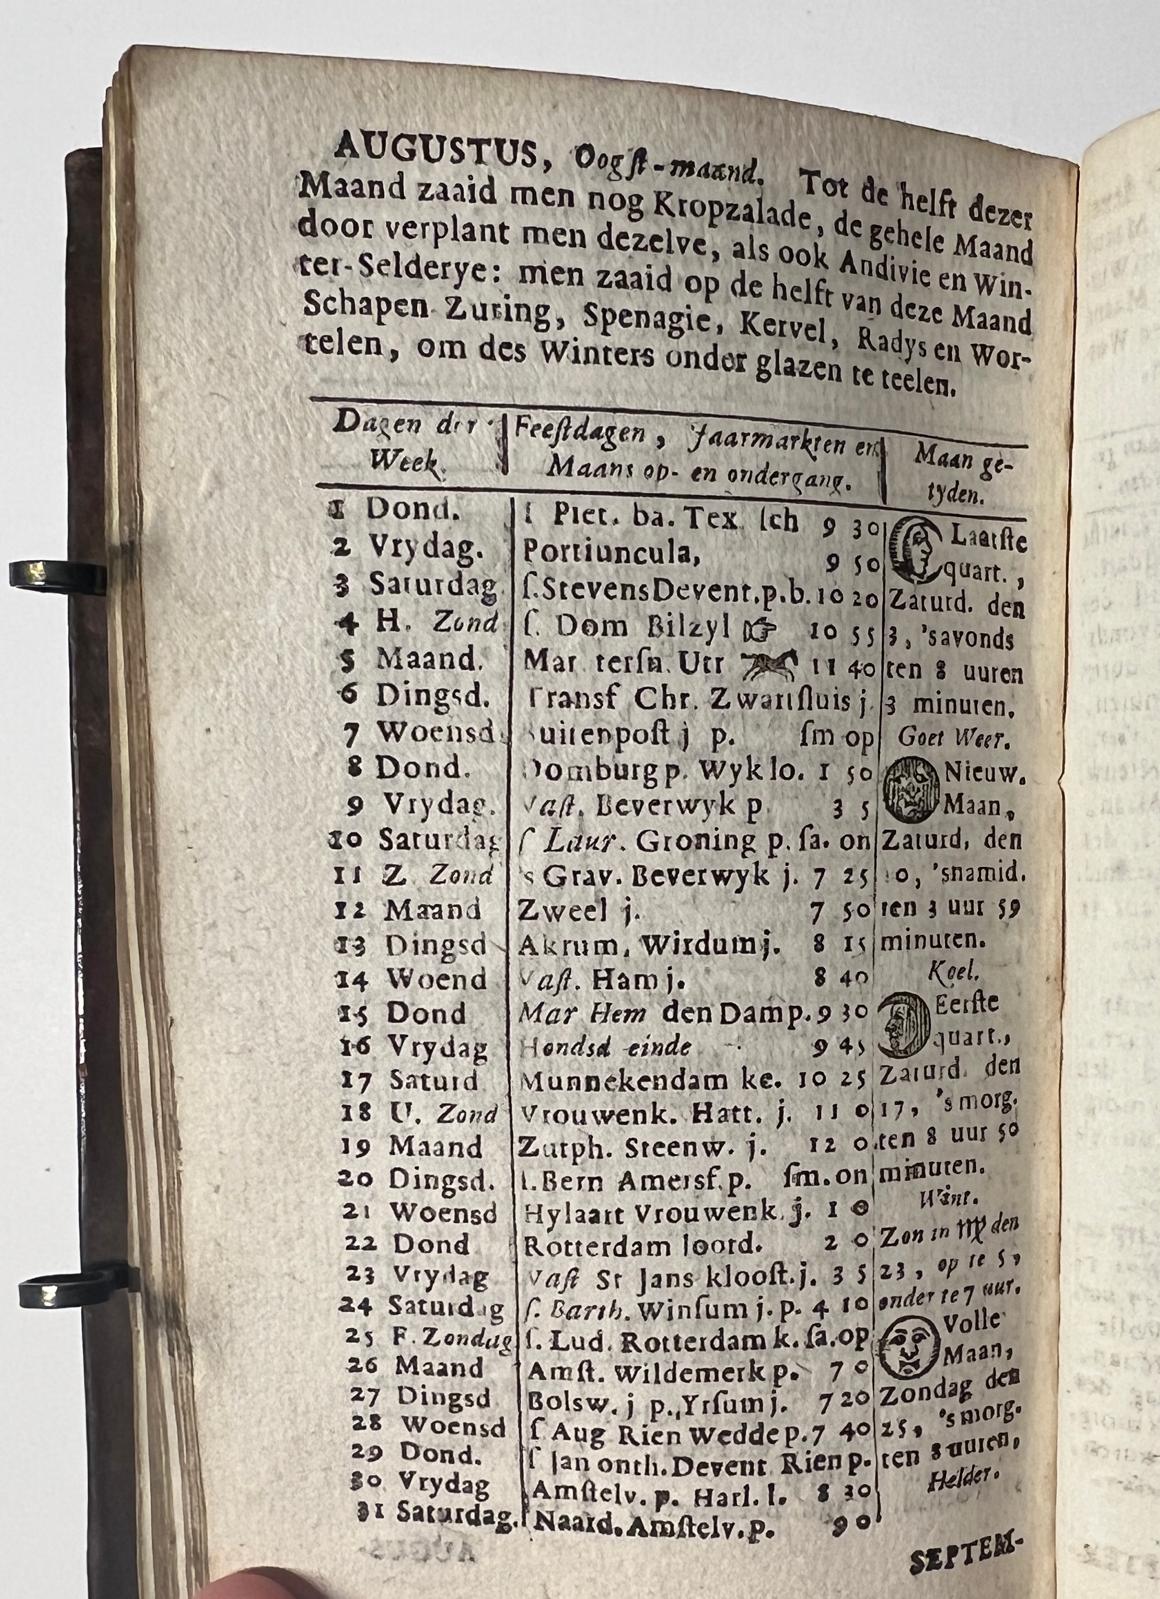 AUGUSTUS, Oogſt-maand. Tot de helft dezer
Maand zaaid men nog Kropzalade, de gehele Maand
door verplant men dezelve, als ook Andivie en Win-
ter-Selderye: men zaaid op de helft van deze Maand
Schapen-Zuring, Spenagie, Kervel, Radys en Wor-
telen, om des Winters onder glazen te teelen.
Dagen der Week. Feeſtdagen, Jaarmarkten en Maans op- en ondergang. Maan ge-tyden.
1 Dond. ſ Piet. ba. Tex. ſch 9 30 Laatſte
2 Vrydag. Portiuncula, 9 50 quart.,
3 Saturdag ſ. Stevens Devent. p. b. 10 20 Zaturd. den
4 H. Zond ſ. Dom Bilzyl ☞ 10 55 3, 'savonds
5 Maand. Mar. terſn. Utr 11 40 ten 8 uuren
6 Dingsd. Transf Chr. Zwartſluis j. 3 minuten.
7 Woensd Buitenpoſt j p. ſm op Goet Weer.
8 Dond. Domburg p. Wyk lo. 1 50 Nieuw.
9 Vrydag. Vaſt. Beverwyk p 3 5 Maan,
10 Saturdag ſ Laur. Groning p. ſa. on Zaturd, den
11 Z Zond 's Grav. Beverwyk j. 7 25 10, 'snamid.
12 Maand Zweel j. 7 50 ten 3 uur 59
13 Dingsd Akrum, Wirdum j. 8 15 minuten.
14 Woend Vaſt. Ham j. 8 40 Koel.
15 Dond Mar Hem den Damp. 9 30 Eerſte
16 Vrydag Hondsd einde 9 45 quart.,
17 Saturd Munnekendam ke. 10 25 Zaturd. den
18 U. Zond Vrouwenk. Hatt. j. 11 0 17, 's morg.
19 Maand Zutph. Steenw. j. 12 0 ten 8 uur 50
20 Dingsd. ſ. Bern Amersf. p. ſm. on minuten.
21 Woensd Hylaart Vrouwenk. j. 1 0 Wint.
22 Dond Rotterdam loord. 2 0 Zon in ♍ den
23 Vrydag Vaſt St Jans klooſt. j. 3 5 23, op te 5,
24 Saturdag ſ. Barth. Winſum j. p. 4 10 onder te 7 uur.
25 F. Zondag ſ. Lud. Rotterdam k. ſa. op Volle
26 Maand Amſt. Wildemerk p. 7 0 Maan,
27 Dingsd Bolsw. j p., Yrſum j. 7 20 Zondag den
28 Woensd ſ Aug Rien Wedde p. 7 40 25, 's morg.
29 Dond. ſ Jan onth. Devent Rien p. ten 8 uuren,
30 Vrydag Amſtelv. p. Harl. l. 8 30 Helder.
31 Saturdag. Naard. Amſtelv. p. 9 0
SEPTEM-